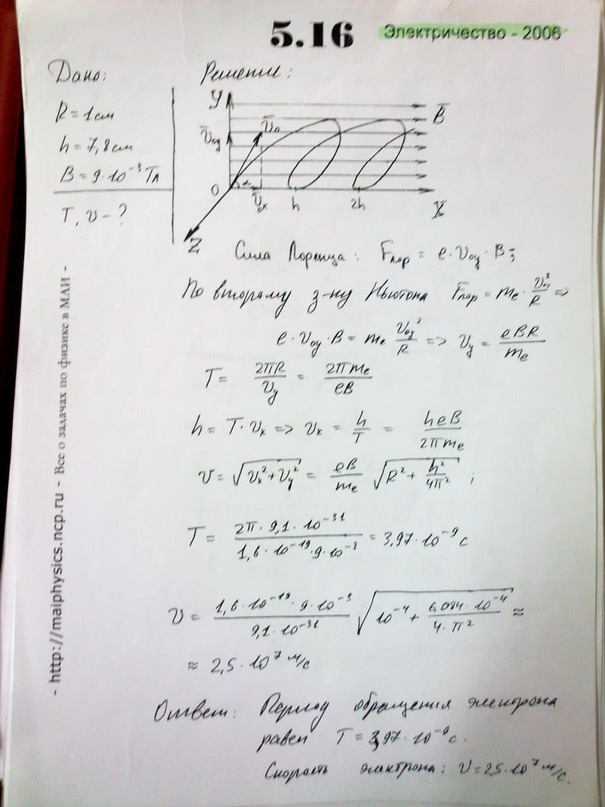 5.16
Электричество - 2006
Дано:
R = 1 см
h = 7,8 см
B = 9·10⁻³ Тл
T, v - ?
Решение:
Y
B̄
v̄₀y
v̄₀
α
0
v̄x
h
2h
X
Z
Сила Лоренца: Fлор = e·v₀y·B;
По второму з-ну Ньютона Fлор = me·v₀y²/R =>
e·v₀y·B = me v₀y²/R => vy = eBR/me
T = 2πR/vy = 2πme/eB
h = T·vx => vx = h/T = heB/2πme
v = √(vx²+vy²) = eB/me √(R² + h²/4π²) ;
T = 2π·9,1·10⁻³¹/1,6·10⁻¹⁹·9·10⁻³ = 3,97·10⁻⁹ с
v = 1,6·10⁻¹⁹·9·10⁻³/9,1·10⁻³¹ √(10⁻⁴ + 6,084·10⁻⁴/4·π²) ≈
≈ 2,5·10⁷ м/с
Ответ: Период обращения электрона
равен T = 3,97·10⁻⁹ с.
Скорость электрона: v = 2,5·10⁷ м/с.
- http://maiphysics.ncp.ru - Все о задачах по физике в МАИ -